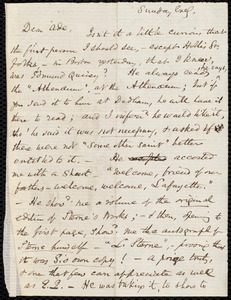 Sunday Evg.
Dear 'Ade,
Isn't it a little curious that
the first person I should see, - except Hollis St.
folks, - in Boston yesterday, that I knew,
was Edmund Quincy? He always reads, he says,
the "Athenæum", at the Athenæum; but if
you send it to him at Dedham, he will have it
there to read; and I "inform" he would like it,
tho' he said it was not necessary, & asked if
there were not "Some other saint" better
entitled to it. - He accosted
me with a shout - "Welcome, friend of our
fathers - welcome, welcome, Lafayette."
- He show'd me a volume of the original
edition of Sterne's Works; - & then, opening to
the first page, show'd me the autograph of
Sterne himself - "L. Sterne" - proving that
it was his own copy! - a prize truly,
& one that few can appreciate as well
as E. Q. - He was taking it, to show to